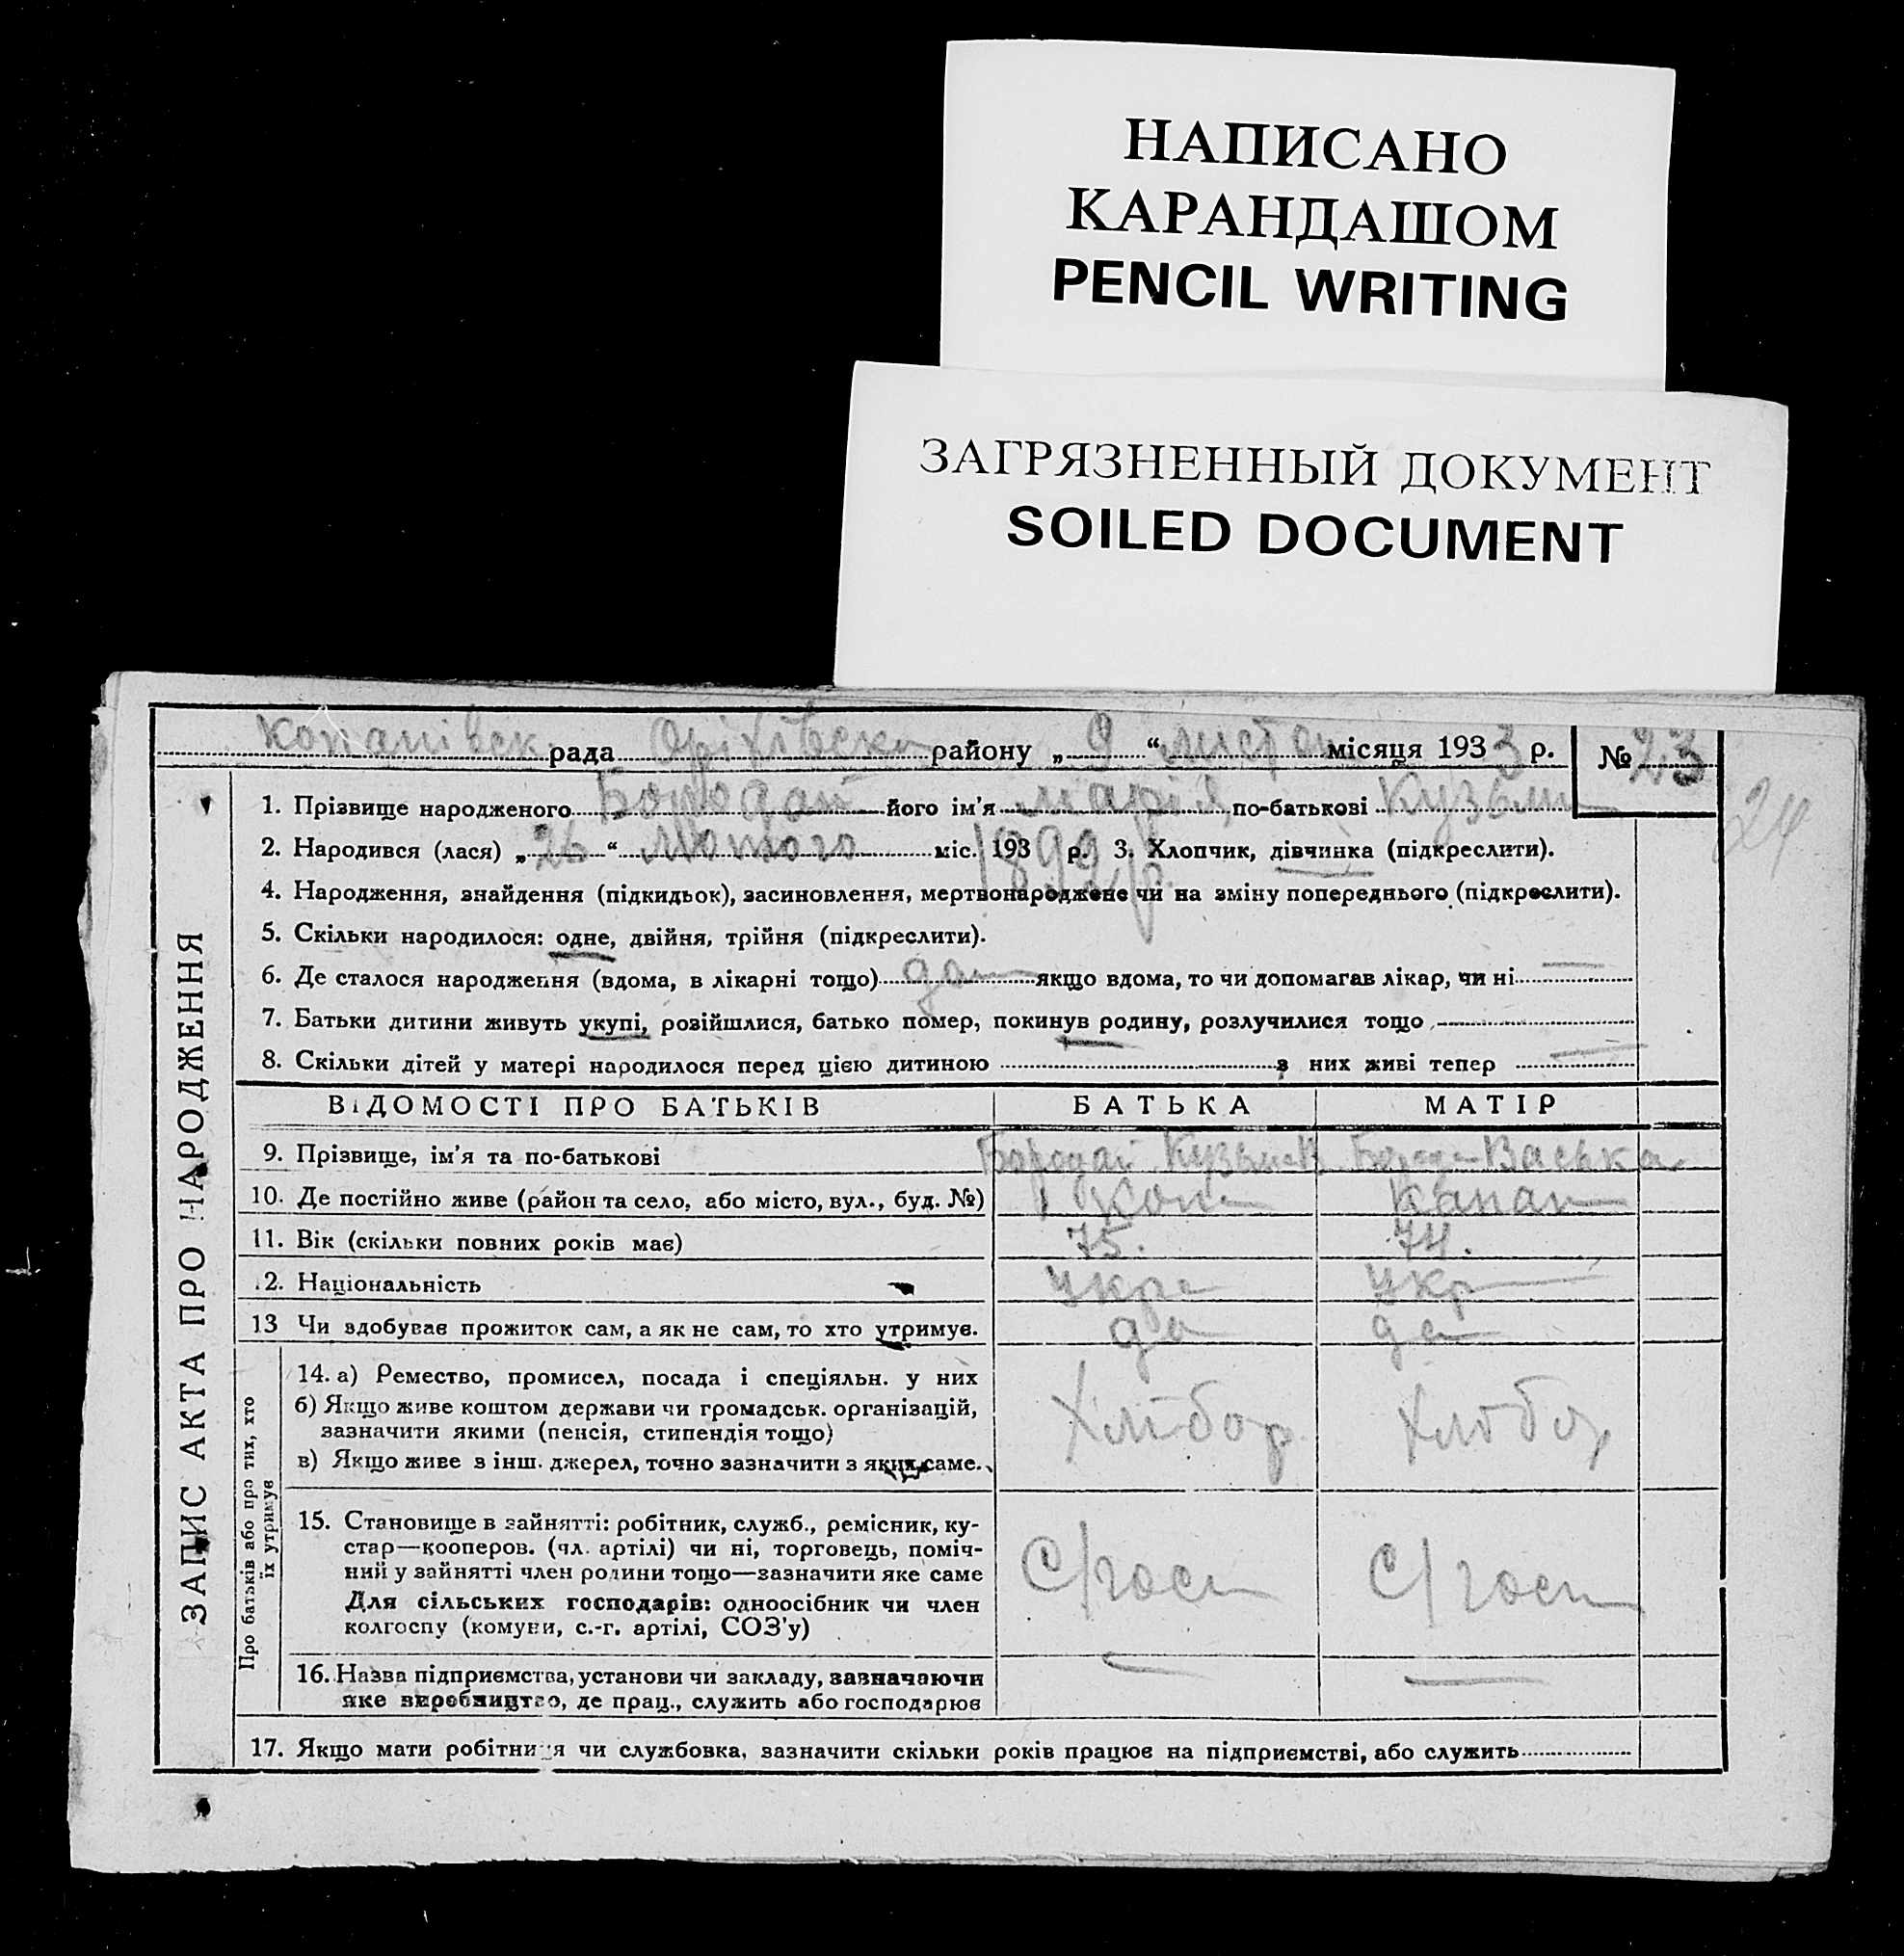 НАПИСАНО
КАРАНДАШОМ
PENCIL WRITING
ЗАГРЯЗНЕННЫЙ ДОКУМЕНТ
SOILED DOCUMENT
Копанівск рада Оріхівська району „ 9 “ листоп місяця 1933 р. № 23
24
ЗАПИС АКТА ПРО НАРОДЖЕННЯ
1. Прізвище народженого Бородай його ім'я Марія по-батькові Кузьм
2. Народився (лася) „ 26 “ Лютого міс. 193 р. 1892 р. 3. Хлопчик, дівчинка (підкреслити).
4. Народження, знайдення (підкидьок), засиновлення, мертвонароджене чи на зміну попереднього (підкреслити).
5. Скільки народилося: одне, двійня, трійня (підкреслити).
6. Де сталося народження (вдома, в лікарні тощо) якщо вдома, то чи допомагав лікар, чи ні —
7. Батьки дитини живуть укупі, розійшлися, батько помер, покинув родину, розлучилися тощо
8. Скільки дітей у матері народилося перед цією дитиною з них живі тепер —
ВІДОМОСТІ ПРО БАТЬКІВ БАТЬКА МАТІР
9. Прізвище, ім'я та по-батькові Бородай Кузьма Васька
10. Де постійно живе (район та село, або місто, вул., буд. №) Коп Капан
11. Вік (скільки повних років має) 75. 74.
12. Національність Укр Укр
13 Чи здобуває прожиток сам, а як не сам, то хто утримує. да да
Про батьків або про тих, хто
їх утримує
14. а) Ремество, промисел, посада і спеціяльн. у них
б) Якщо живе коштом держави чи громадськ. організацій,
зазначити якими (пенсія, стипендія тощо) Хлібор Хлібор
в) Якщо живе з інш. джерел, точно зазначити з яких саме.
15. Становище в зайнятті: робітник, служб., ремісник, ку-
стар—кооперов. (чл. артілі) чи ні, торговець, поміч-
ний у зайнятті член родини тощо—зазначити яке саме С/госп С/госп
Для сільських господарів: одноосібник чи член
колгоспу (комуни, с.-г. артілі, СОЗ'у)
16. Назва підприємства, установи чи закладу, зазначаючи — —
яке виробництво, де прац., служить або господарює
17. Якщо мати робітниця чи службовка, зазначити скільки років працює на підприємстві, або служить